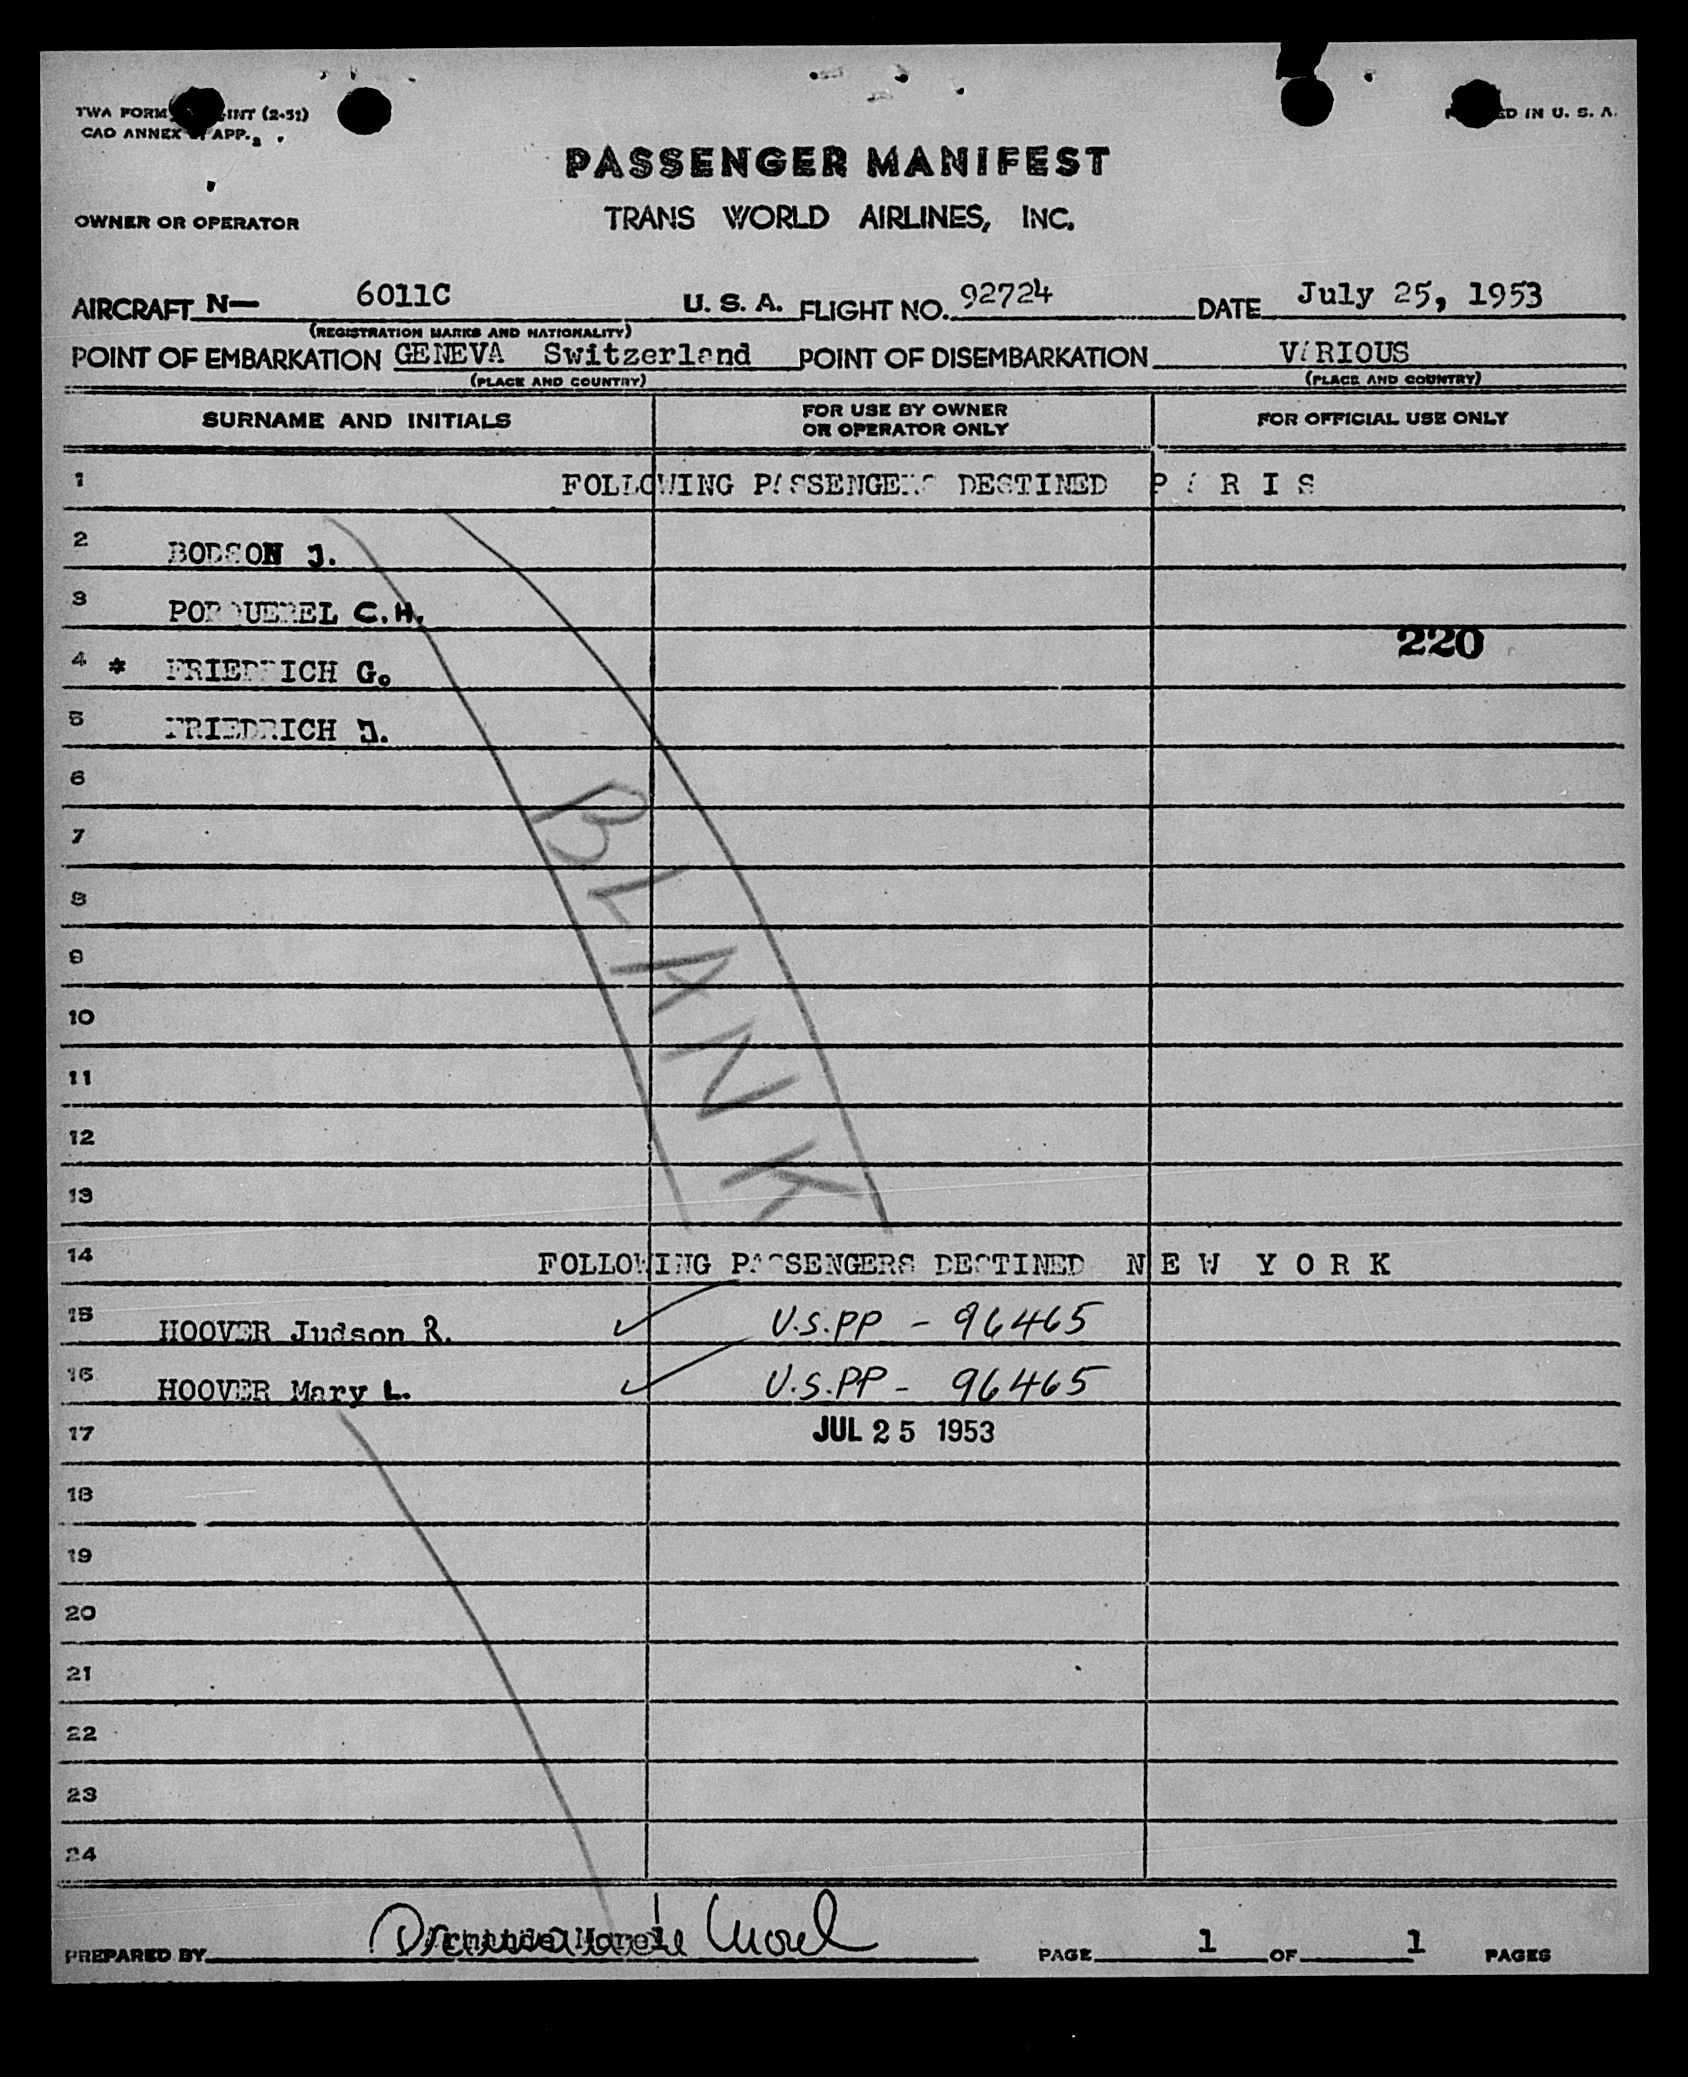 TWA FORM INT (2-51)
CAO ANNEX APP.
PRINTED IN U. S. A.
PASSENGER MANIFEST
OWNER OR OPERATOR
TRANS WORLD AIRLINES, INC.
AIRCRAFT N— 6011C U. S. A. FLIGHT NO. 92724 DATE July 25, 1953
(REGISTRATION MARKS AND NATIONALITY)
POINT OF EMBARKATION GENEVA Switzerland POINT OF DISEMBARKATION VARIOUS
(PLACE AND COUNTRY) (PLACE AND COUNTRY)
SURNAME AND INITIALS
FOR USE BY OWNER
OR OPERATOR ONLY
FOR OFFICIAL USE ONLY
1 FOLLOWING PASSENGERS DESTINED P A R I S
2 BODSON J.
3 PORQUEREL C.H.
220
4 * FRIEDRICH G.
5 FRIEDRICH J.
6
7
8
9
10
11
12
13
BLANK
14 FOLLOWING PASSENGERS DESTINED N E W Y O R K
15 HOOVER Judson R. U.S.PP - 96465
16 HOOVER Mary L. U.S.PP - 96465
17 JUL 25 1953
18
19
20
21
22
23
24
PREPARED BY PAGE 1 OF 1 PAGES